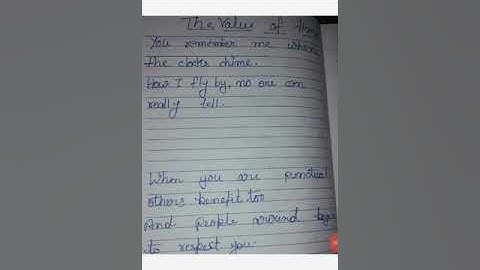 The Value of Time
You remember me when
the clocks chime.
How I fly by, no one can
really tell.
When you are punctual
others benefit too
And people around begin
to respect you